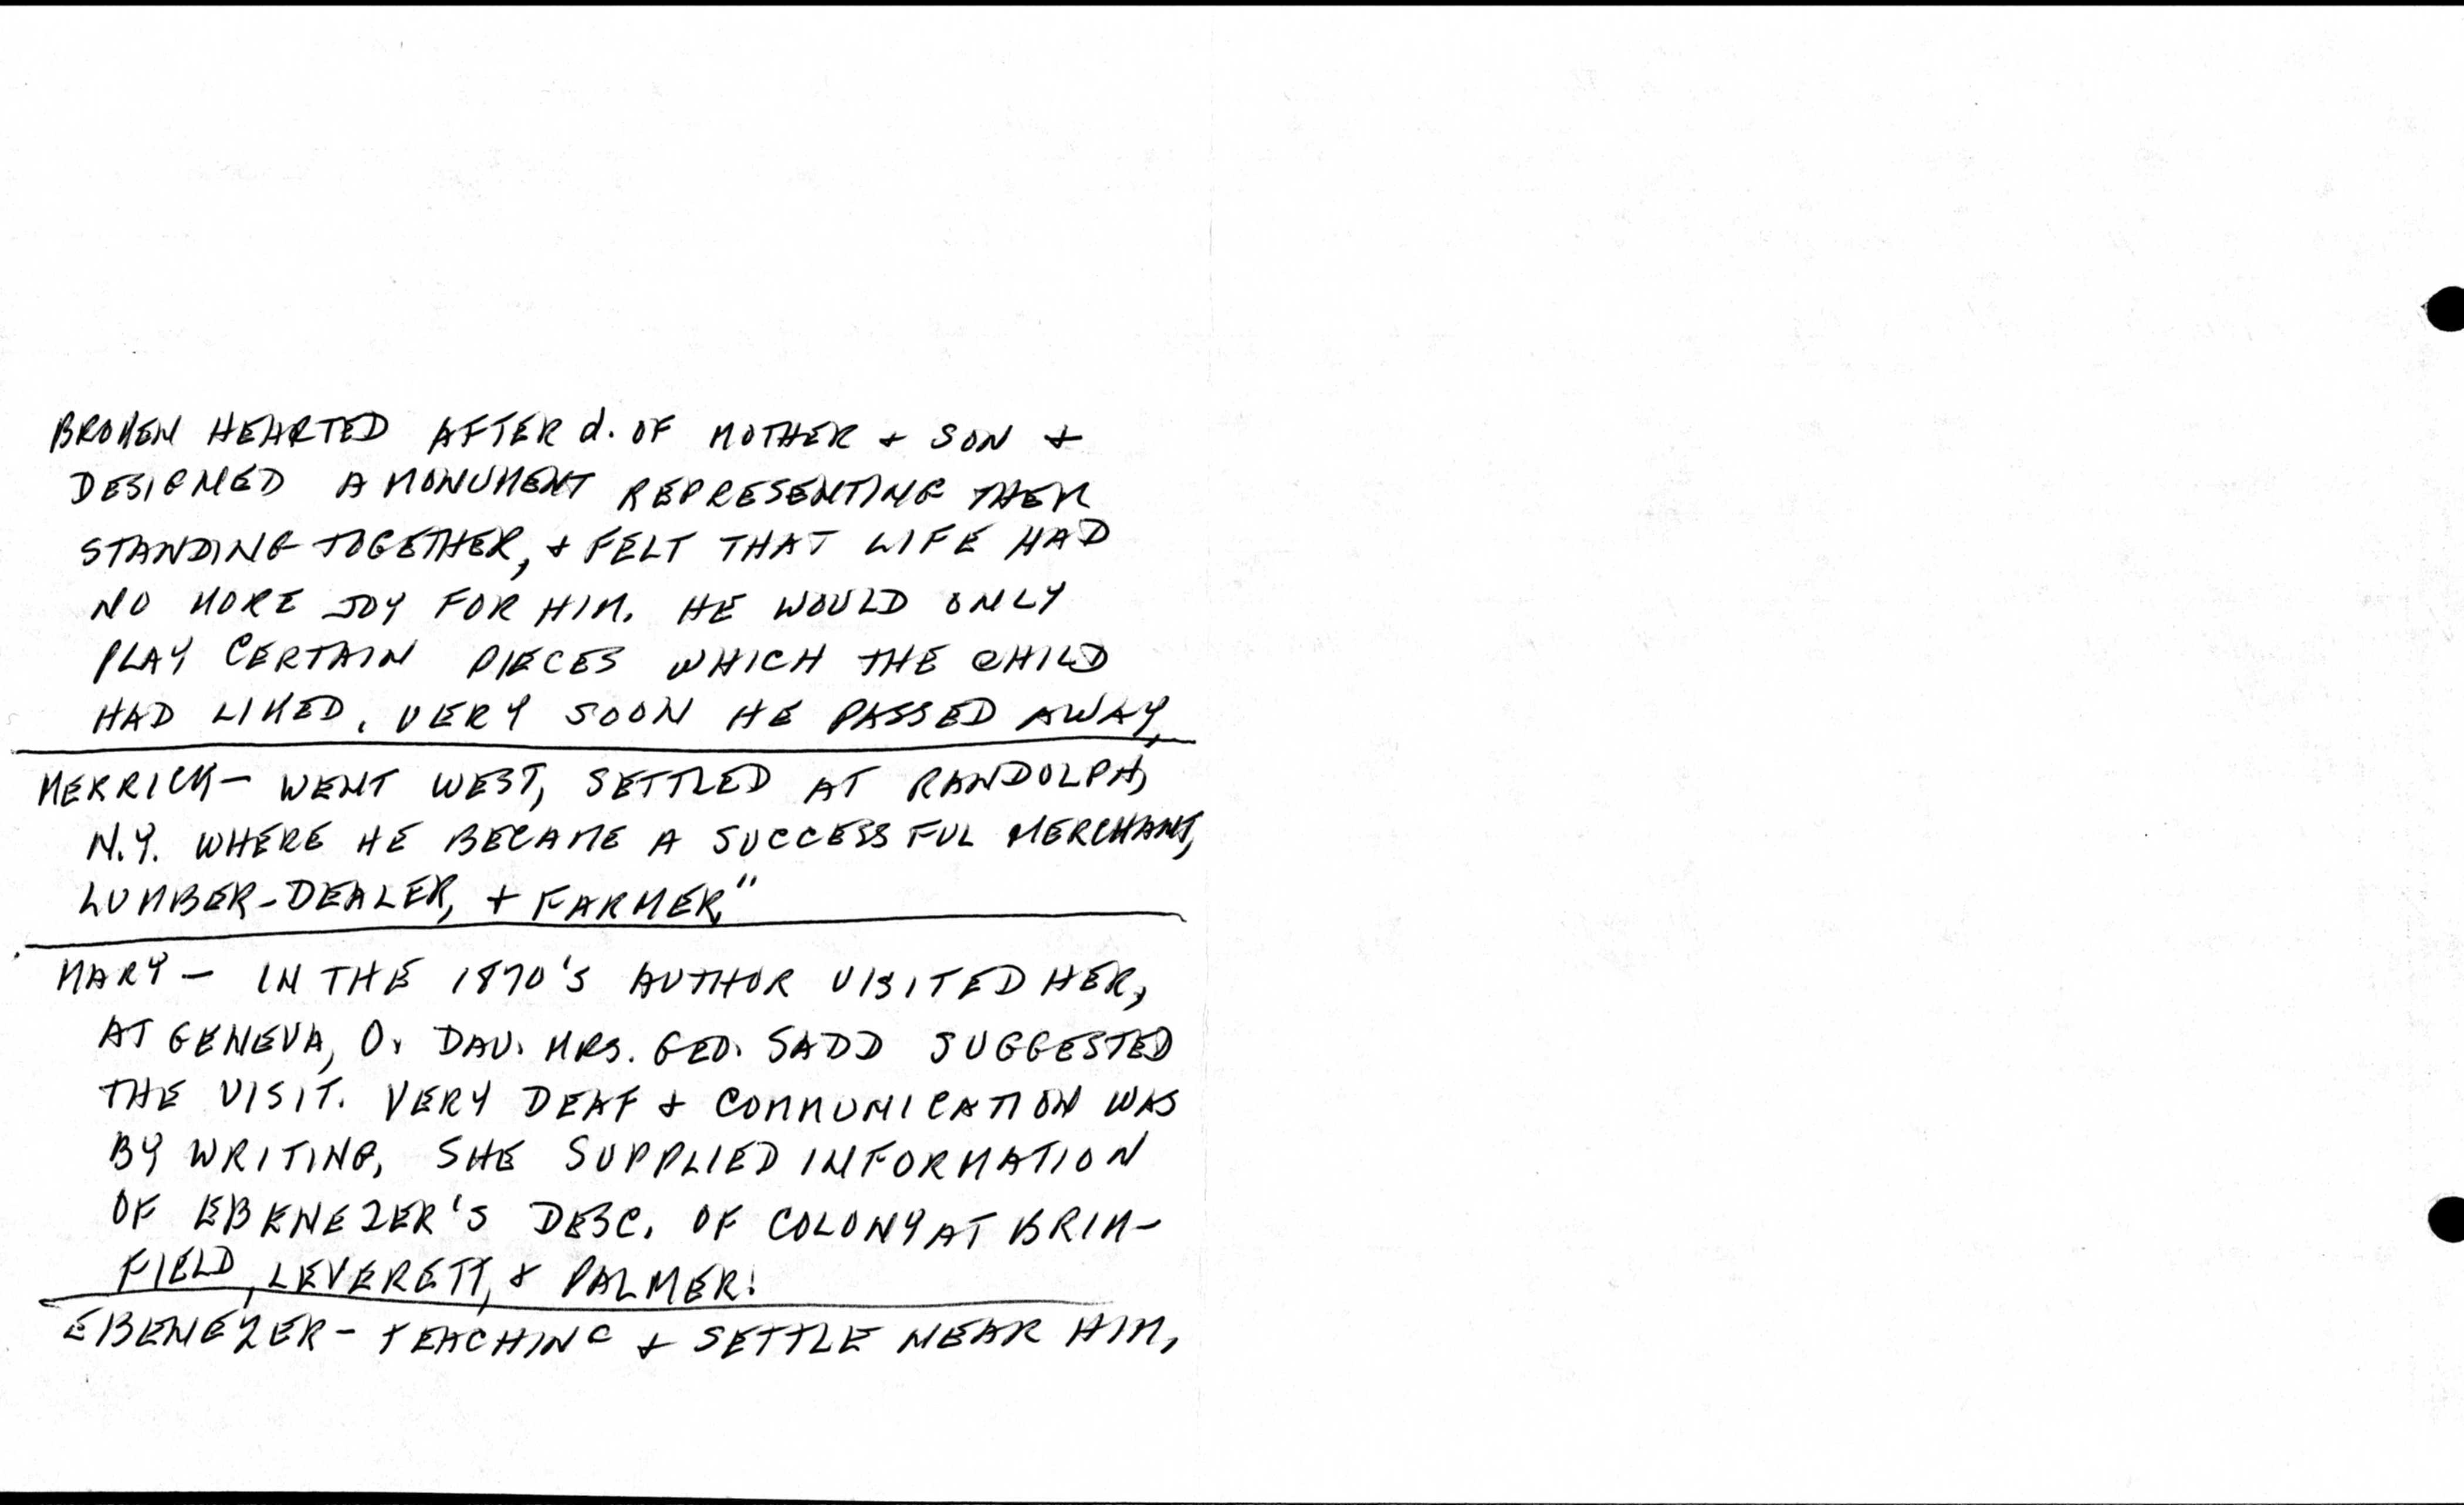 BROKEN HEARTED AFTER d. OF MOTHER + SON +
DESIGNED A MONUMENT REPRESENTING THEM
STANDING TOGETHER, + FELT THAT LIFE HAD
NO MORE JOY FOR HIM. HE WOULD ONLY
PLAY CERTAIN PIECES WHICH THE CHILD
HAD LIKED. VERY SOON HE PASSED AWAY.
MERRICK- WENT WEST, SETTLED AT RANDOLPH,
N.Y. WHERE HE BECAME A SUCCESSFUL MERCHANT,
LUMBER-DEALER, + FARMER."
MARY - IN THE 1870'S AUTHOR VISITED HER,
AT GENEVA, O. DAU. MRS. GEO. SADD SUGGESTED
THE VISIT. VERY DEAF + COMMUNICATION WAS
BY WRITING, SHE SUPPLIED INFORMATION
OF EBENEZER'S DESC. OF COLONY AT BRIM-
FIELD, LEVERETT, + PALMER!
EBENEZER - TEACHING + SETTLE NEAR HIM,